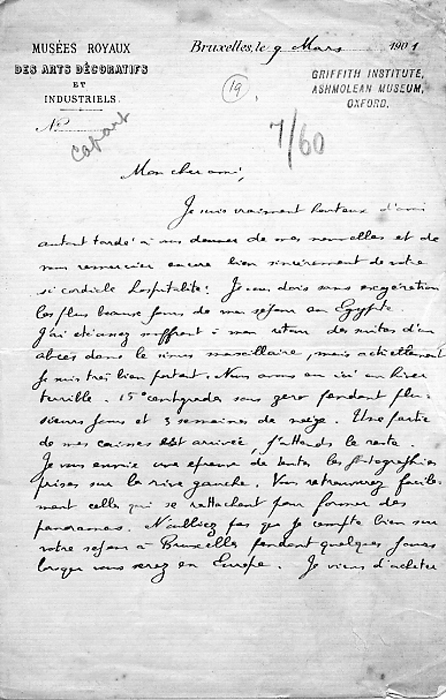 MUSÉES ROYAUX
DES ARTS DÉCORATIFS
ET
INDUSTRIELS.
No
Capart
Bruxelles, le 9 Mars 1901
19
GRIFFITH INSTITUTE,
ASHMOLEAN MUSEUM,
OXFORD.
7/60
Mon cher ami,
Je suis vraiment honteux d'avoir
autant tardé à vous donner de mes nouvelles et de
vous remercier encore bien sincèrement de votre
si cordiale hospitalité. Je vous dois sans exagération
les plus beaux jours de mon séjour en Egypte.
J'ai été assez souffrant à mon retour des suites d'un
abcès dans le sinus maxillaire, mais actuellement
je suis très bien portant. Nous avons eu ici un hiver
terrible. 15° centigrades sous zero pendant plu-
sieurs jours et 3 semaines de neige. Une partie
de mes caisses est arrivée, j'attends le reste.
Je vous envoie une épreuve de toutes les photographies
prises sur la rive gauche. Vous retrouverez facile-
ment celles qui se rattachent pour former des
panoramas. N'oubliez pas que je compte bien sur
votre séjour à Bruxelles pendant quelques jours
lorsque vous serez en Europe. Je viens d'acheter